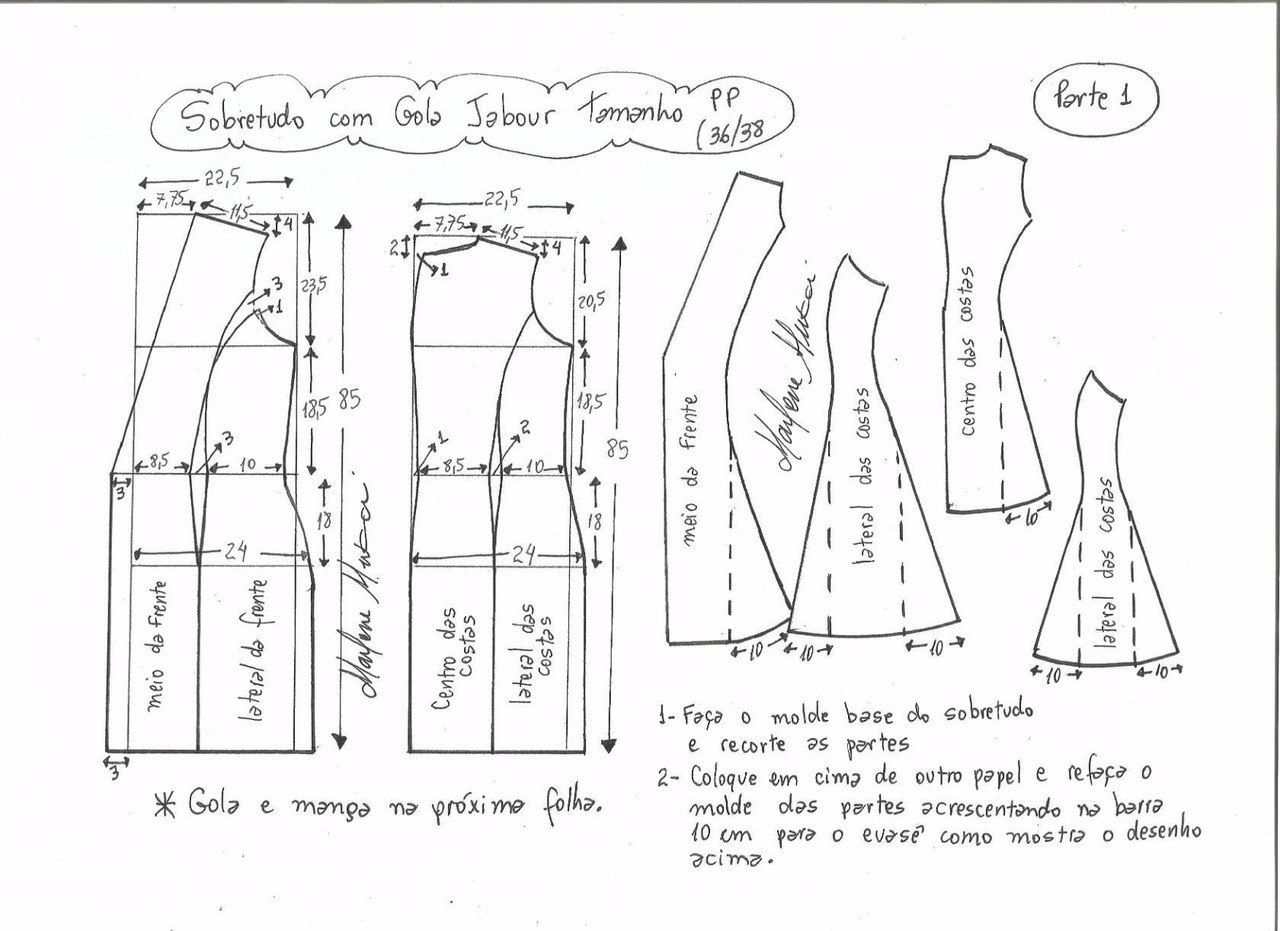 Sobretudo com Gola Jabour Tamanho PP
(36/38
Parte 1
22,5
7,75
11,5
4
3
1
23,5
18,5
85
8,5
3
10
3
18
24
meio da frente
lateral da frente
3
Marlene Mukai
22,5
7,75
11,5
2
4
1
20,5
18,5
85
1
8,5
2
10
18
24
Centro das
costas
lateral das
costas
meio da frente
10
Marlene Mukai
lateral das costas
10
10
centro das costas
10
lateral das costas
10
10
* Gola e manga na próxima folha.
1- Faça o molde base do sobretudo
e recorte as partes
2- Coloque em cima de outro papel e refaça o
molde das partes acrescentando na barra
10 cm para o evasê como mostra o desenho
acima.